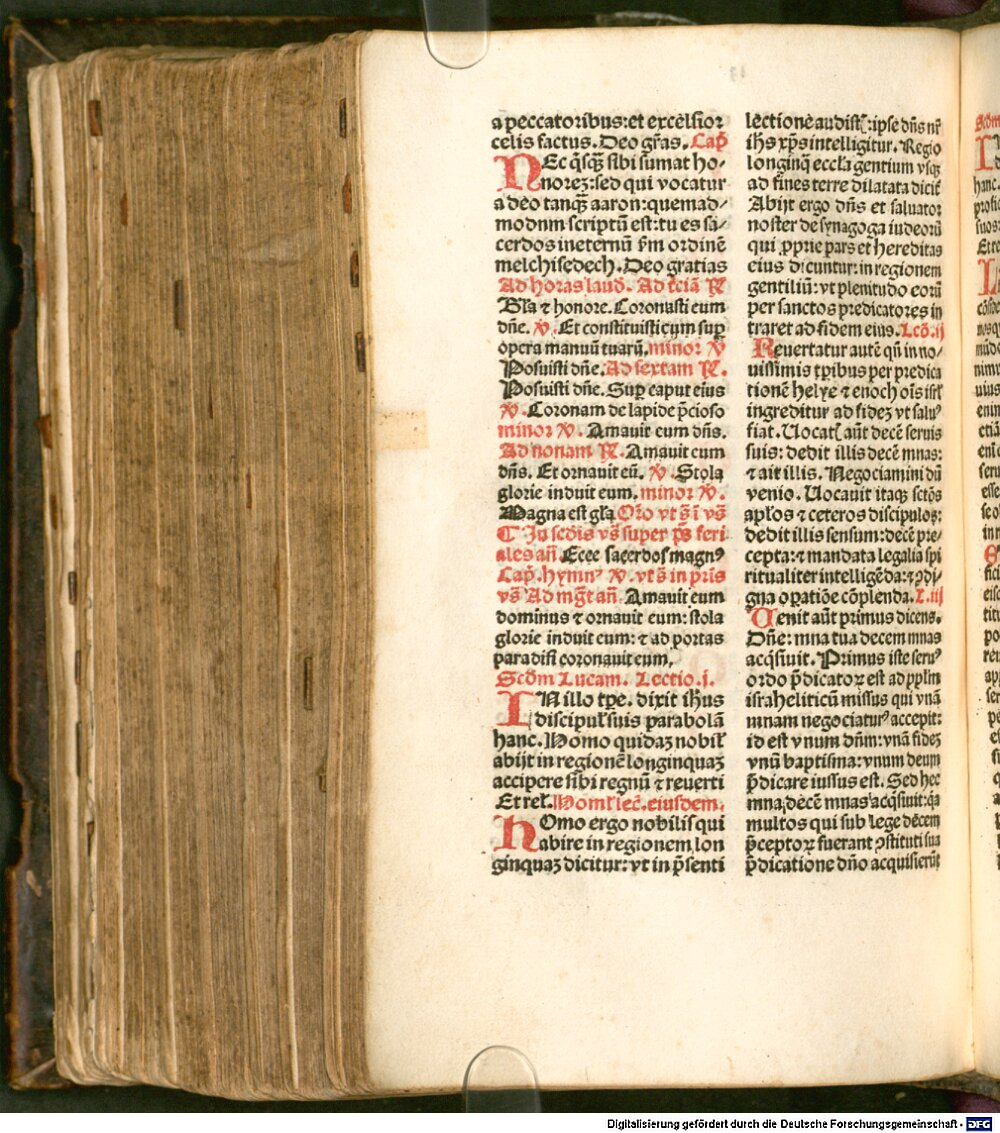 a peccatoribus: et excelsior
celis factus. Deo grās. Cap̄
NEc q̄sq̄ꝫ sibi sumat ho⸗
norez: sed qui vocatur
a deo tanq̄ꝫ aaron: quemad⸗
modnm scriptū est: tu es sa⸗
cerdos ineternū ẜm ordinē
melchisedech. Deo gratias
Ad horas laud. Ad t̄ciā ℟
Gl̄a ⁊ honore. Coronasti eum
dn̄e. ℣. Et constituisti eum sup̄
opera manuū tuarū. minor ℣
Posuisti dn̄e. Ad sextam ℟.
Posuisti dn̄e. Sup̄ caput eius
℣. Coronam de lapide p̄cioso
minor ℣. Amauit eum dn̄s.
Ad nonam ℟. Amauit eum
dn̄s. Et ornauit eū. ℣. Stola
glorie induit eum. minor ℣.
Magna est gl̄a Oro vt s̄ i vs̄
¶ In scđis vs̄ super ps̄ feri
ales an̄. Ecce sacerdos magnꝰ
Cap̄. hymnꝰ ℣. vt s̄ in pris
vs̄ Ad mḡt an̄. Amauit eum
dominus ⁊ ornauit eum: stola
glorie induit eum: ⁊ ad portas
paradisi coronauit eum.
Scđm Lucam. Lectio. j.
IN illo tꝑe. dixit ih̄us
discipul̄ suis parabolā
hanc. Homo quidaꝫ nobil̄
abijt in regionē longinquaꝫ
accipere sibi regnū ⁊ reuerti
Et rel̄. Homl̄ lec̄. eiusdem.
HOmo ergo nobilis qui
abire in regionem lon
ginquaꝫ dicitur: vt in p̄senti
lectionē audist̄: ipse dn̄s nr̄
ih̄s xp̄s intelligitur. Regio
longinq̄ eccl̄a gentium vsqꝫ
ad fines terre dilatata dicit̄
Abijt ergo dn̄s et saluator
noster de synagoga iudeorū
qui ꝓprie pars et hereditas
eius dicuntur: in regionem
gentiliū: vt plenitudo eorū
per sanctos predicatores in
traret ad fidem eius. Lcō. ij
Reuertatur autē qn̄ in no⸗
uissimis tꝑibus per predica
tionē helye ⁊ enoch oīs isrl̄
ingreditur ad fideꝫ vt saluꝰ
fiat. Uocat̄ aūt decē seruis
suis: dedit illis decē mnas:
⁊ ait illis. Negociamini dū
venio. Uocauit itaqꝫ sctōs
apl̄os ⁊ ceteros discipulos:
dedit illis sensum: decē pre⸗
cepta: ⁊ mandata legalia spi
ritualiter intelligēda: ⁊ ꝯdi⸗
gna oꝑatiōe cōplenda. L. iij
Uenit aūt primus dicens.
Dn̄e: mna tua decem mnas
acq̄siuit. Primus iste seruꝰ
ordo p̄dicatoꝝ est ad pp̄lm
israheliticū missus qui vnā
mnam negociaturꝰ accepit:
id est vnum dn̄m: vnā fideꝫ
vnū baptisma: vnum deum
p̄dicare iussus est. Sed hec
mna decē mnas acq̄siuit: q̄a
multos qui sub lege decem
p̄ceptoꝝ fuerant ꝯstituti sua
p̄dicatione dn̄o acquisierūt
Digitalisierung gefördert durch die Deutsche Forschungsgemeinschaft - DFG